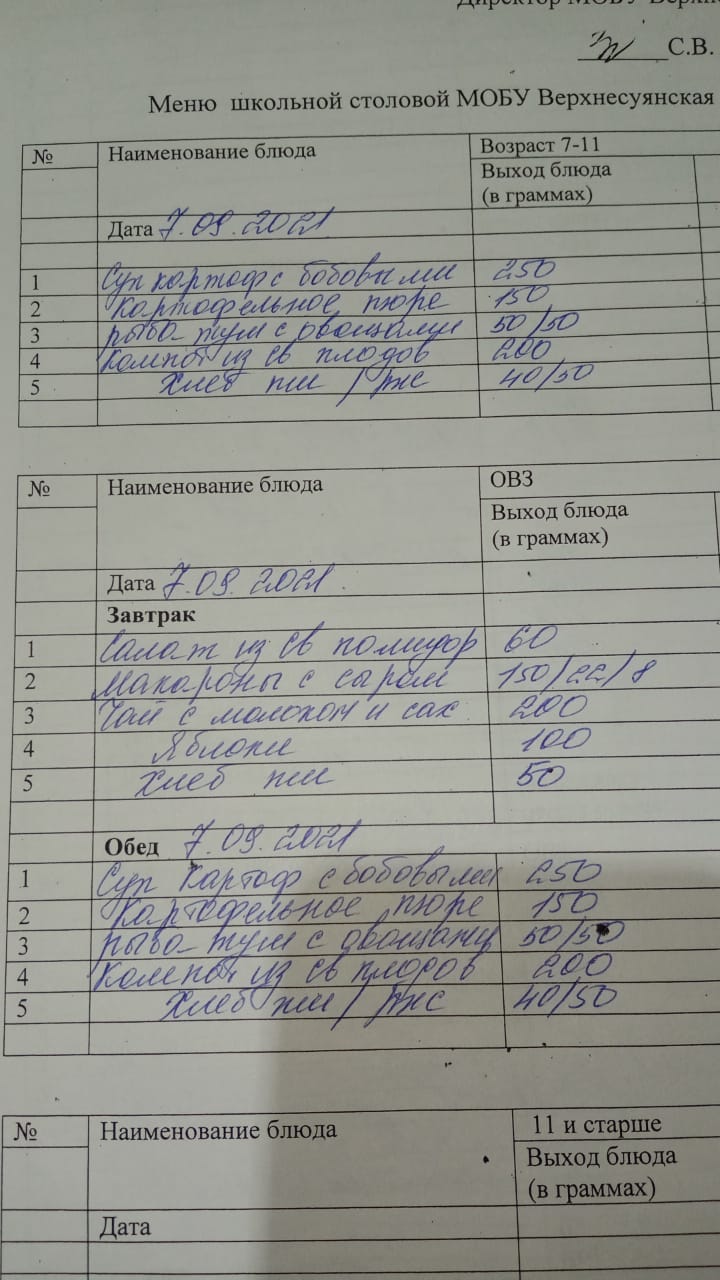 Директор МОБУ Верхне
С.В.
Меню школьной столовой МОБУ Верхнесуянская
№ Наименование блюда Возраст 7-11
Выход блюда
(в граммах)
Дата 7.09.2021
1 Суп картоф с бобовыми 250
2 Картофельное пюре 150
3 рыба туш с овощами 50/50
4 Компот из св плодов 200
5 Хлеб пш / рж 40/50
№ Наименование блюда ОВЗ
Выход блюда
(в граммах)
Дата 7.09.2021
Завтрак
1 Салат из св помидор 60
2 Макароны с сыром 150/22/8
3 Чай с молоком и сах 200
4 Яблоки 100
5 Хлеб пш 50
Обед 7.09.2021
1 Суп Картоф с бобовыми 250
2 Картофельное пюре 150
3 рыба туш с овощами 50/50
4 Компот из св плодов 200
5 Хлеб пш / рж 40/50
№ Наименование блюда 11 и старше
Выход блюда
(в граммах)
Дата